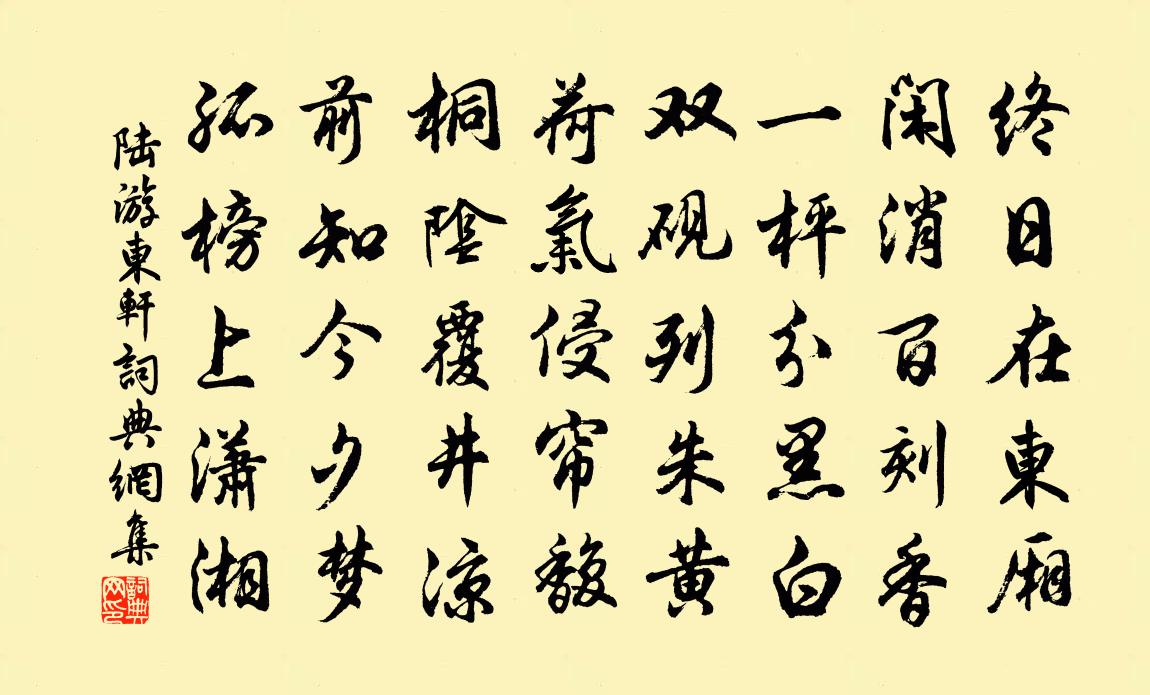 终日在東廂
闲消百刻香
一枰分黑白
双砚列朱黄
荷氣侵帘馥
桐陰覆井凉
前知今夕梦
孤榜上潇湘
陆游東軒詞典網集
詞典网印